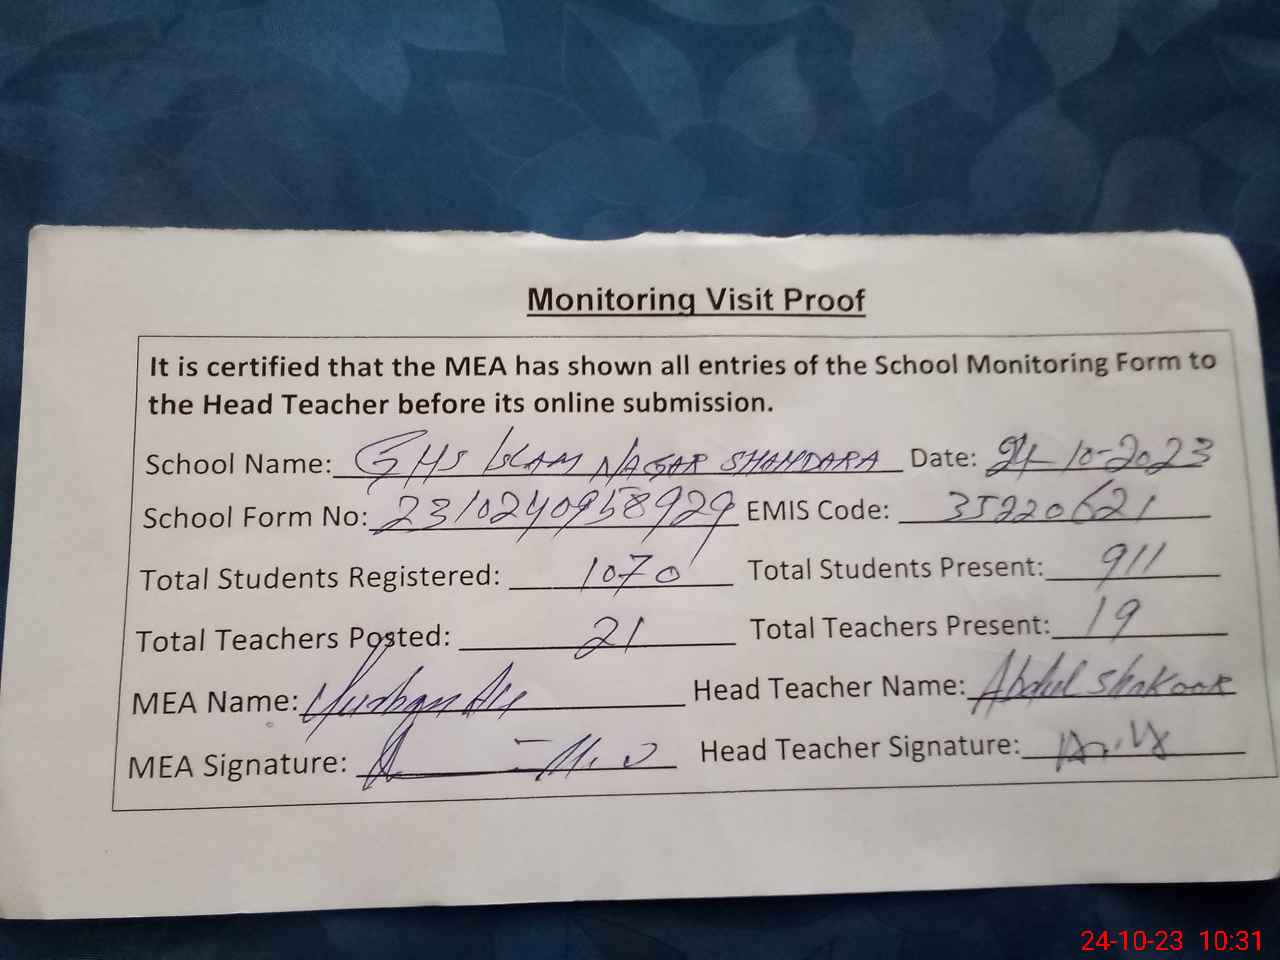 Monitoring Visit Proof
It is certified that the MEA has shown all entries of the School Monitoring Form to
the Head Teacher before its online submission.
School Name: GHS ISLAM NAGAR SHAHDARA Date: 24-10-2023
School Form No: 2310240958929 EMIS Code: 35220621
Total Students Registered: 1070 Total Students Present: 911
Total Teachers Posted: 21 Total Teachers Present: 19
MEA Name: Head Teacher Name: Abdul Shakoor
MEA Signature: Head Teacher Signature:
24-10-23 10:31